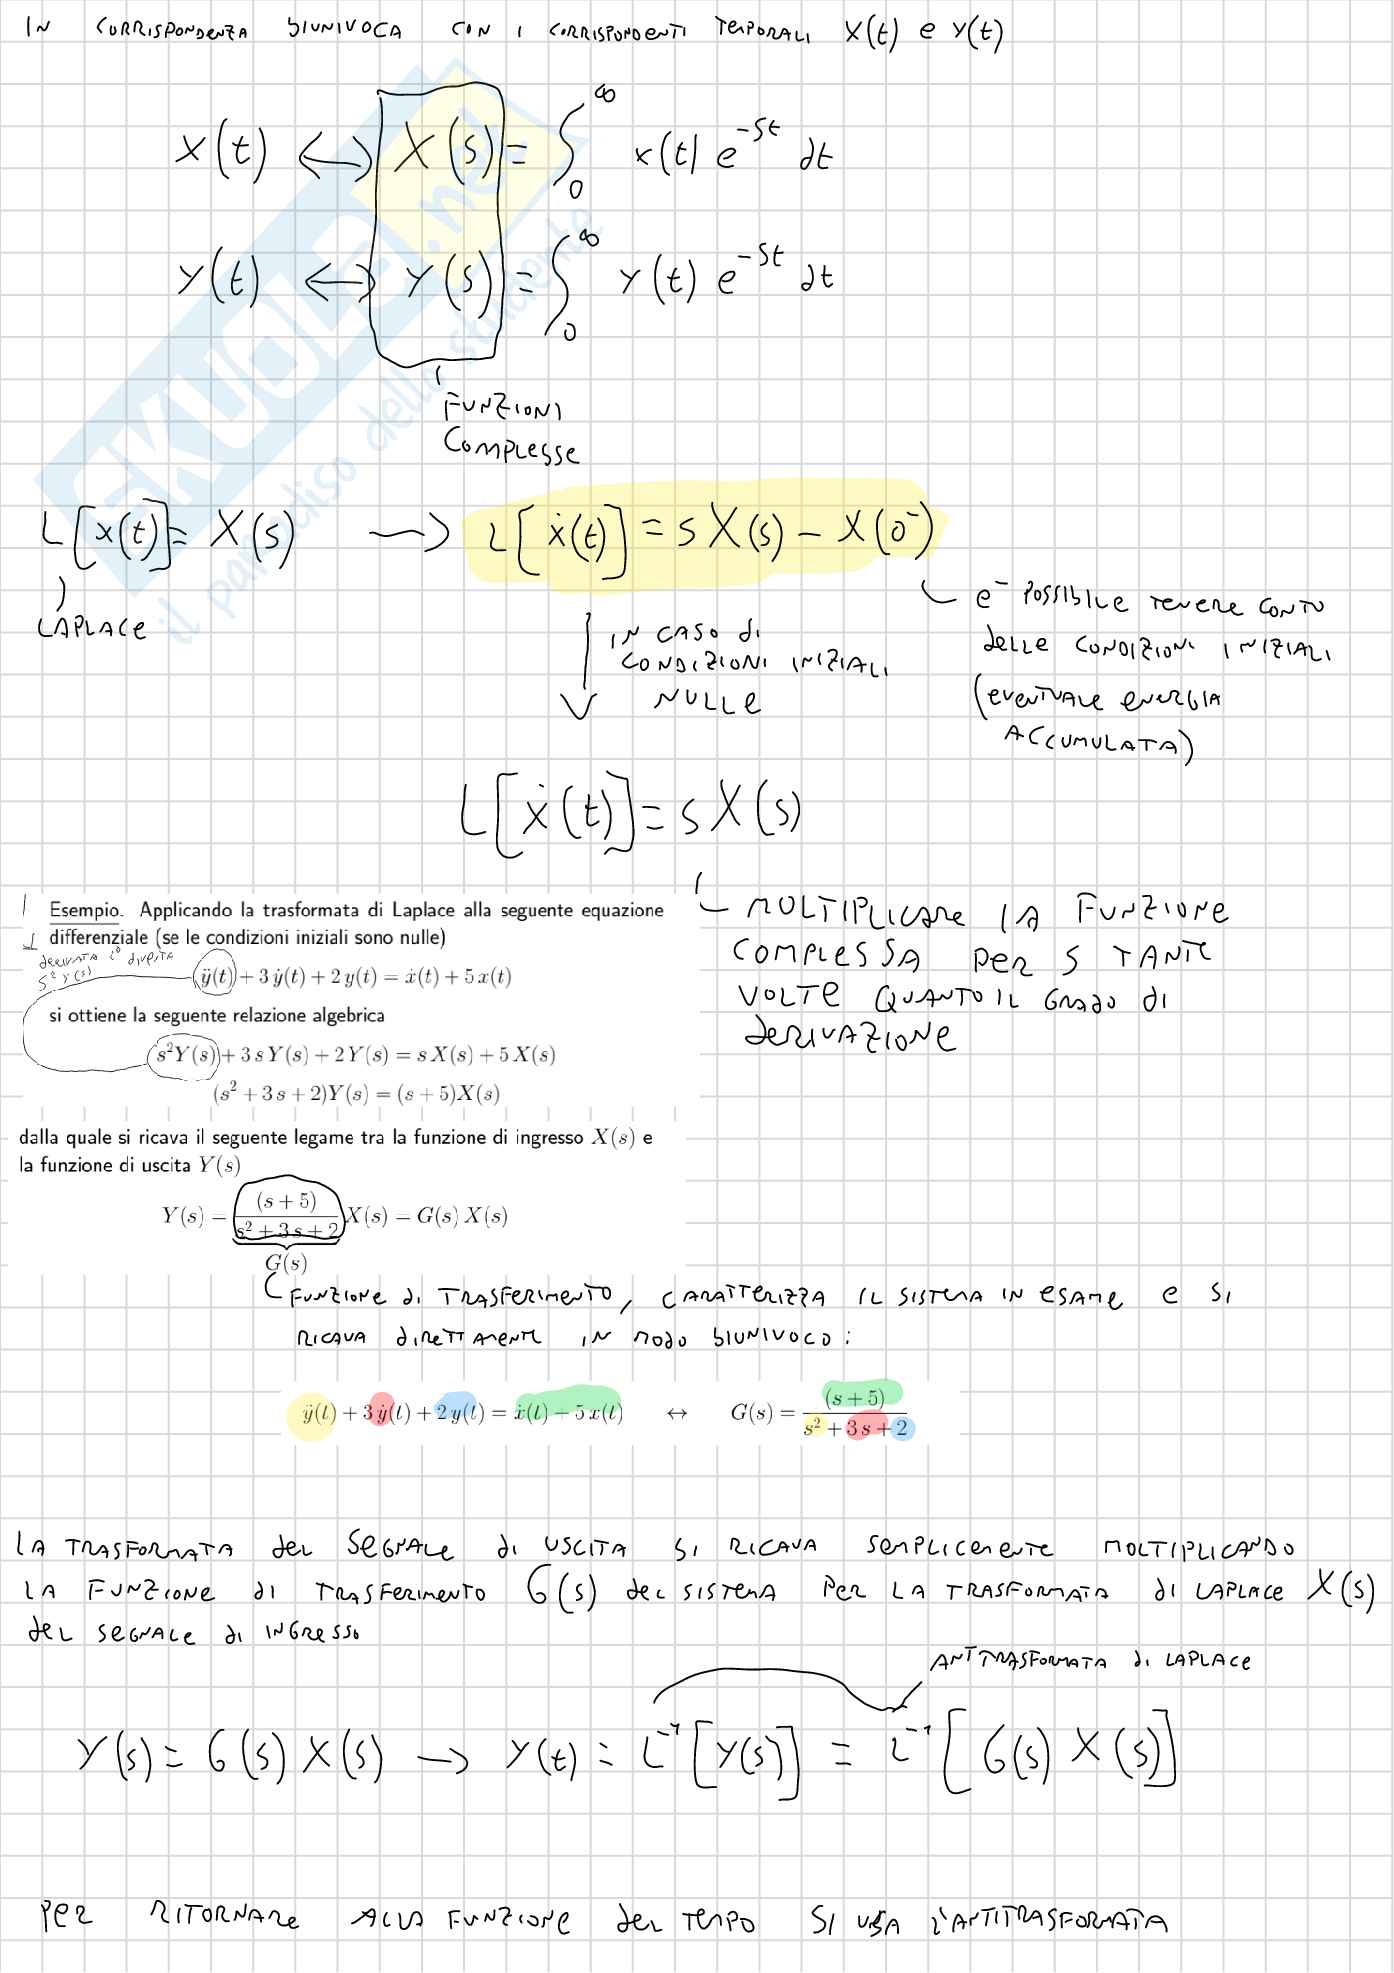 IN CORRISPONDENZA BIUNIVOCA CON I CORRISPONDENTI TEMPORALI X(t) e Y(t)
X(t) ⟷ X(s) = ∫₀^∞ x(t) e^-st dt
Y(t) ⟷ Y(s) = ∫₀^∞ Y(t) e^-st dt
FUNZIONI
COMPLESSE
SKUOLA.net
il paradiso dello studente
L[x(t)] = X(s) → L[ẋ(t)] = sX(s) - X(0⁻)
LAPLACE
e⁻ POSSIBILE TENERE CONTO
delle CONDIZIONI INIZIALI
(EVENTUALE ENERGIA
ACCUMULATA)
IN CASO di
CONDIZIONI INIZIALI
NULLE
L[ẋ(t)] = sX(s)
MOLTIPLICARE LA FUNZIONE
COMPLESSA PER S TANTE
VOLTE QUANTO IL GRADO di
DERIVAZIONE
Esempio. Applicando la trasformata di Laplace alla seguente equazione
differenziale (se le condizioni iniziali sono nulle)
DERIVATA DIVENTA
S² Y(s)
ÿ(t) + 3 ẏ(t) + 2 y(t) = ẋ(t) + 5 x(t)
si ottiene la seguente relazione algebrica
s²Y(s) + 3 s Y(s) + 2 Y(s) = s X(s) + 5 X(s)
(s² + 3 s + 2)Y(s) = (s + 5)X(s)
dalla quale si ricava il seguente legame tra la funzione di ingresso X(s) e
la funzione di uscita Y(s)
Y(s) = (s + 5) / (s² + 3 s + 2) X(s) = G(s) X(s)
G(s)
FUNZIONE di TRASFERIMENTO, CARATTERIZZA IL SISTEMA IN ESAME e SI
RICAVA dIRETTAMENTE IN MODO BIUNIVOCO:
ÿ(t) + 3 ẏ(t) + 2 y(t) = ẋ(t) + 5 x(t) ↔ G(s) = (s + 5) / (s² + 3 s + 2)
LA TRASFORMATA del SEGNALE di USCITA SI RICAVA SEMPLICEMENTE MOLTIPLICANDO
LA FUNZIONE di TRASFERIMENTO G(s) del SISTEMA PER LA TRASFORMATA di LAPLACE X(s)
del SEGNALE di INGRESSO
ANTITRASFORMATA di LAPLACE
Y(s) = G(s) X(s) → Y(t) = L⁻¹[Y(s)] = L⁻¹[G(s) X(s)]
PER RITORNARE ALLA FUNZIONE del TEMPO SI USA L'ANTITRASFORMATA